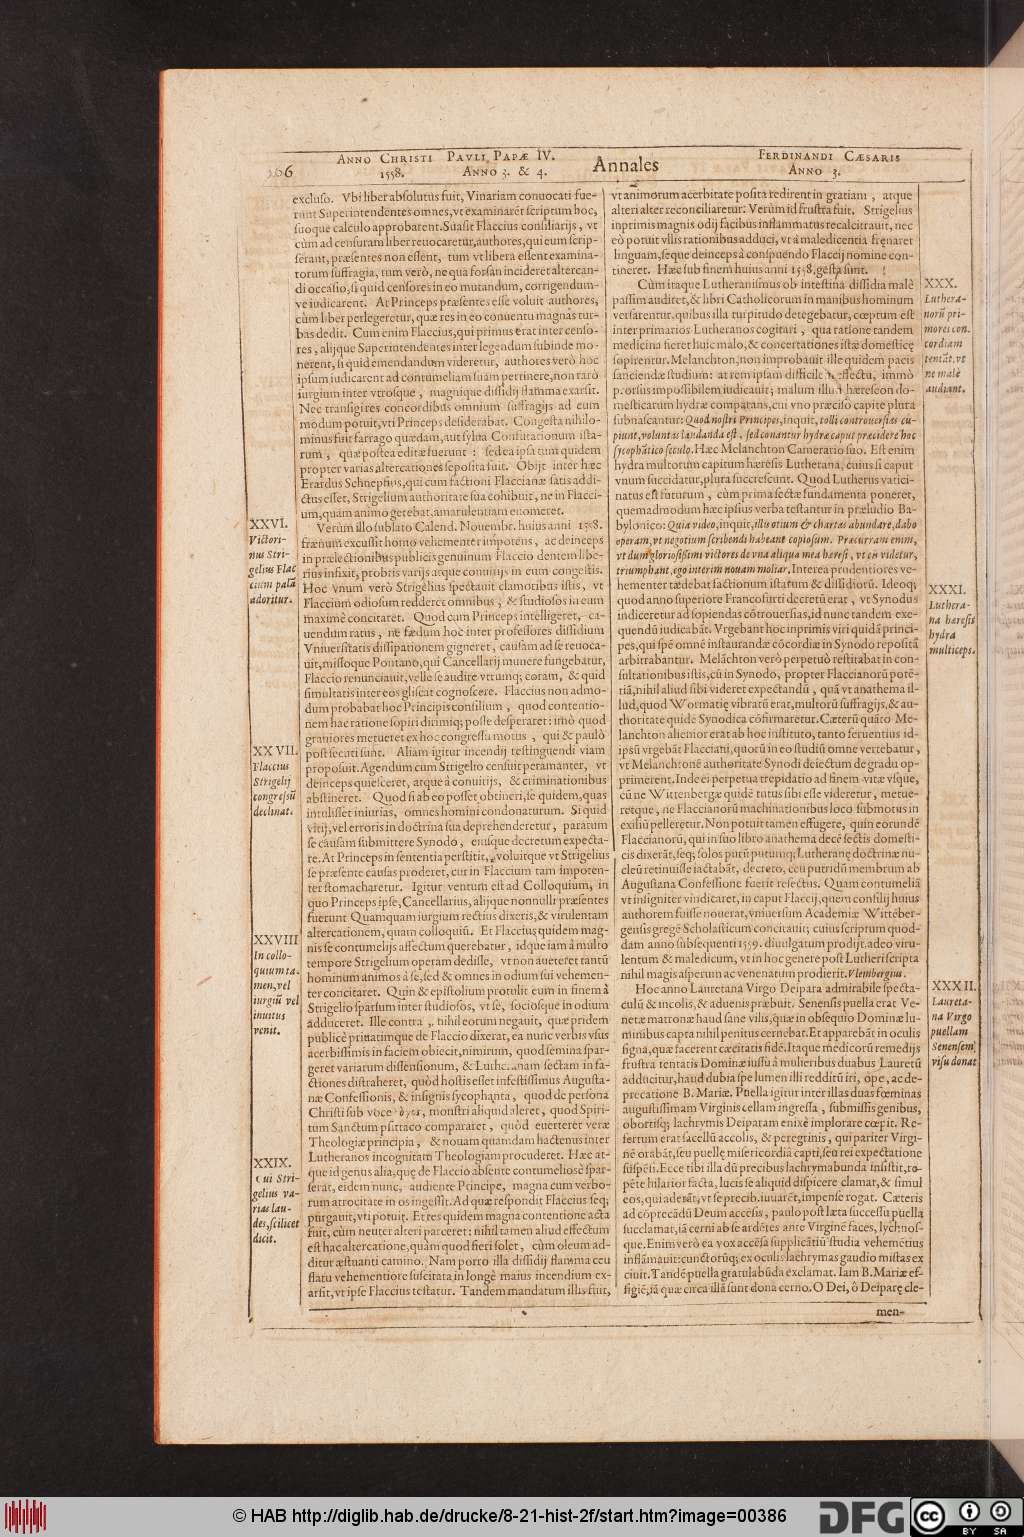 ANNO CHRISTI PAVLI PAPÆ IV. Annales FERDINANDI CÆSARIS
1558. ANNO 3. & 4. ANNO 3.
excluso. Vbi liber absolutus fuit, Vinariam conuocati fue-
runt Superintendentes omnes, vt examinarēt scriptum hoc,
suoque calculo approbarent. Suasit Flaccius consiliarijs, vt
cùm ad censuram liber reuocaretur, authores, qui eum scrip-
serant, præsentes non essent, tum vt libera essent examina-
torum suffragia, tum verò, ne qua forsan incideret altercan-
di occasio, si quid censores in eo mutandum, corrigendum-
ve iudicarent. At Princeps præsentes esse voluit authores,
cùm liber perlegeretur, quæ res in eo conuentu magnas tur-
bas dedit. Cum enim Flaccius, qui primus erat inter censo-
res, alijque Superintendentes inter legendum subinde mo-
nerent, si quid emendandum videretur, authores verò hoc
ipsum iudicarent ad contumeliam suam pertinere, non rarò
iurgium inter vtrosque, magnique dissidij flamma exarsit.
Nec transigi res concordibus omnium suffragijs ad eum
modum potuit, vti Princeps desiderabat. Congesta nihilo-
minus fuit farrago quædam, aut sylua Confutationum ista-
rum, quæ postea editæ fuerunt: sed ea ipsa tum quidem
propter varias altercationes seposita fuit. Obijt inter hæc
Erardus Schnepfius, qui cum factioni Flaccianæ satis addi-
ctus esset, Strigelium authoritate sua cohibuit, ne in Flacci-
um, quam animo gerebat, amarulentiam euomeret.
XXVI.
Victori-
nus Stri-
gelius Flac
cium palā
adoritur.
Verùm illo sublato Calend. Nouembr. huius anni 1558.
frænum excussit homo vehementer impotens, ac deinceps
in prælectionibus publicis genuinum Flaccio dentem libe-
rius infixit, probris varijs atque conuitijs in eum congestis.
Hoc vnum verò Strigelius spectauit clamoribus istis, vt
Flaccium odiosum redderet omnibus, & studiosos in eum
maximè concitaret. Quod cum Princeps intelligeret, ca-
uendum ratus, ne fædum hoc inter professores dissidium
Vniuersitatis dissipationem gigneret, causam ad se reuoca-
uit, missoque Pontano, qui Cancellarij munere fungebatur,
Flaccio renunciauit, velle se audire vtrumq; coram, & quid
simultatis inter eos gliscat cognoscere. Flaccius non admo-
dum probabat hoc Principis consilium, quod contentio-
nem hac ratione sopiri dirimiq; posse desperaret: imò quod
grauiores metueret ex hoc congressu motus, qui & paulò
XXVII.
Flaccius
Strigelij
congressū
declinat.
post secuti sunt. Aliam igitur incendij restinguendi viam
proposuit. Agendum cum Strigelio censuit peramanter, vt
deinceps quiesceret, atque à conuitijs, & criminationibus
abstineret. Quod si ab eo posset obtineri, se quidem, quas
intulisset iniurias, omnes homini condonaturum. Si quid
vitij, vel erroris in doctrina sua deprehenderetur, paratum
se causam submittere Synodo, eiusque decretum expecta-
re. At Princeps in sententia perstitit, voluitque vt Strigelius
se præsente causas proderet, cur in Flaccium tam impoten-
ter stomacharetur. Igitur ventum est ad Colloquium, in
quo Princeps ipse, Cancellarius, alijque nonnulli præsentes
fuerunt Quamquam iurgium rectius dixeris, & virulentam
altercationem, quam colloquiū. Et Flaccius quidem mag-
XXVIII
In collo-
quium ta-
men, vel
iurgiū vel
inuitus
venit.
nis se contumelijs affectum querebatur, idque iam à multo
tempore Strigelium operam dedisse, vt non aueteret tantū
hominum animos à se, sed & omnes in odium sui vehemen-
ter concitaret. Quin & epistolium protulit eum in finem à
Strigelio sparsum inter studiosos, vt se, sociosque in odium
adduceret. Ille contra, nihil eorum negauit, quæ pridem
publicè priuatimque de Flaccio dixerat, ea nunc verbis vsus
acerbissimis in faciem obiecit, nimirum, quod semina spar-
geret variarum dissensionum, & Lutheranam sectam in fa-
ctiones distraheret, quòd hostis esset infestissimus Augusta-
næ Confessionis, & insignis sycophanta, quod de persona
Christi sub voce λόγος, monstri aliquid aleret, quod Spiri-
tum Sanctum psittaco compararet, quòd euerteret veræ
Theologiæ principia, & nouam quamdam hactenus inter
XXIX.
Cui Stri-
gelius va-
rias lau-
des, scilicet
dicit.
Lutheranos incognitam Theologiam procuderet. Hæc at-
que id genus alia, quę de Flaccio absente contumeliosè spar-
serat, eidem nunc, audiente Principe, magna cum verbo-
rum atrocitate in os ingessit. Ad quæ respondit Flaccius seq;
purgauit, vti potuit. Et res quidem magna contentione acta
fuit, cùm neuter alteri parceret: nihil tamen aliud effectum
est hac altercatione, quàm quod fieri solet, cùm oleum ad-
ditur æstuanti camino. Nam porro illa dissidij flamma ceu
flatu vehementiore suscitata in longè maius incendium ex-
arsit, vt ipse Flaccius testatur. Tandem mandatum illis fuit,
vt animorum acerbitate posita redirent in gratiam, atque
alteri alter reconciliaretur. Verùm id frustra fuit. Strigelius
inprimis magnis odij facibus inflammatus recalcitrauit, nec
eò potuit vllis rationibus adduci, vt à maledicentia frenaret
linguam, seque deinceps à conspuendo Flaccij nomine con-
tineret. Hæc sub finem huius anni 1558. gesta sunt.
XXX.
Luthera-
norū pri-
mores con.
cordiam
tentāt, vt
ne malè
audiant.
Cùm itaque Lutheranismus ob intestina dissidia malè
passim audiret, & libri Catholicorum in manibus hominum
versarentur, quibus illa turpitudo detegebatur, cœptum est
inter primarios Lutheranos cogitari, qua ratione tandem
medicina fieret huic malo, & concertationes istæ domesticę
sopirentur. Melanchton, non improbauit ille quidem pacis
sanciendæ studium: at rem ipsam difficilem effectu, immò
prorsus impossibilem iudicauit; malum illud hæreseon do-
mesticarum hydræ comparans, cui vno præciso capite plura
subnascantur: Quod nostri Principes, inquit, tolli controuersias cu-
piunt, voluntas laudanda est, sed conantur hydræ caput præcidere hoc
sycophātico seculo. Hæc Melanchton Camerario suo. Est enim
hydra multorum capitum hæresis Lutherana, cuius si caput
vnum succidatur, plura succrescunt. Quod Lutherus vatici-
natus est futurum, cùm prima sectæ fundamenta poneret,
quemadmodum hæc ipsius verba testantur in præludio Ba-
bylonico: Quia video, inquit, illis otium & chartas abundare, dabo
operam, vt negotium scribendi habeant copiosum. Præcurram enim,
vt dum gloriosissimi victores de vna aliqua mea hæresi, vt eis videtur,
triumphant, ego interim nouam moliar. Interea prudentiores ve-
XXXI.
Luthera-
na hæresis
hydra
multiceps.
hementer tædebat factionum istarum & dissidiorū. Ideoq;
quod anno superiore Francofurti decretū erat, vt Synodus
indiceretur ad sopiendas cōtrouersias, id nunc tandem exe-
quendū iudicabāt. Vrgebant hoc inprimis viri quidā princi-
pes, qui spē omnē instaurandæ cōcordiæ in Synodo repositā
arbitrabantur. Melāchton verò perpetuò restitabat in con-
sultationibus istis, cū in Synodo, propter Flaccianorū potē-
tiā, nihil aliud sibi videret expectandū, quā vt anathema il-
lud, quod Wormatię vibratū erat, multorū suffragijs, & au-
thoritate quidē Synodica cōfirmaretur. Cæterū quāto Me-
lanchton alienior erat ab hoc instituto, tanto feruentius id-
ipsū vrgebāt Flacciani, quorū in eo studiū omne vertebatur,
vt Melanchtonē authoritate Synodi deiectum de gradu op-
primerent. Inde ei perpetua trepidatio ad finem vitæ vsque,
cū ne Wittenbergæ quidē tutus sibi esse videretur, metue-
retque, ne Flaccianorū machinationibus loco submotus in
exiliū pelleretur. Non potuit tamen effugere, quin eorundē
Flaccianorū, qui in suo libro anathema decē sectis domesti-
cis dixerāt, seq; solos purū putumq; Lutheranę doctrinæ nu-
cleū retinuisse iactabāt, decreto, ceu putridū membrum ab
Augustana Confessione fuerit resectus. Quam contumeliā
vt insigniter vindicaret, in caput Flaccij, quem consilij huius
authorem fuisse nouerat, vniuersum Academiæ Wittēber-
gensis gregē Scholasticum concitauit; cuius scriptum quod-
dam anno subsequenti 1559. diuulgatum prodijt, adeo viru-
lentum & maledicum, vt in hoc genere post Lutheri scripta
nihil magis asperum ac venenatum prodierit. Vlembergius.
XXXII.
Laureta-
na Virgo
puellam
Senensem
visu donat
Hoc anno Lauretana Virgo Deipara admirabile specta-
culū & incolis, & aduenis præbuit. Senensis puella erat Ve-
netæ matronæ haud sanè vilis, quæ in obsequio Dominæ lu-
minibus capta nihil penitus cernebat. Et apparebāt in oculis
signa, quæ facerent cæcitatis fidē. Itaque medicorū remedijs
frustra tentatis Dominæ iussu à mulieribus duabus Lauretū
adducitur, haud dubia spe lumen illi redditū iri, ope, ac de-
precatione B. Mariæ. Puella igitur inter illas duas fœminas
augustissimam Virginis cellam ingressa, submissis genibus,
obortisq; lachrymis Deiparam enixè implorare cœpit. Re-
fertum erat sacellū accolis, & peregrinis, qui pariter Virgi-
nē orabāt, seu puellę misericordiā capti, seu rei expectatione
suspēsi. Ecce tibi illa dū precibus lachrymabunda insistit, re-
pētè hilarior facta, lucis se aliquid dispicere clamat, & simul
eos, qui aderāt, vt se precib. iuuarēt, impense rogat. Cæteris
ad cōprecādū Deum accēsis, paulo post læta successu puella
succlamat, iā cerni ab se ardētes ante Virginē faces, lychnos-
que. Enim verò ea vox accēsa supplicātiū studia vehemētius
inflāmauit: cunctorūq; ex oculis lachrymas gaudio mistas ex
ciuit. Tandē puella gratulabūda exclamat. Iam B. Mariæ ef-
figiē, iā quæ circa illā sunt dona cerno. O Dei, ô Deiparę cle-
men-
© HAB http://diglib.hab.de/drucke/8-21-hist-2f/start.htm?image=00386
DFG
cc BY SA